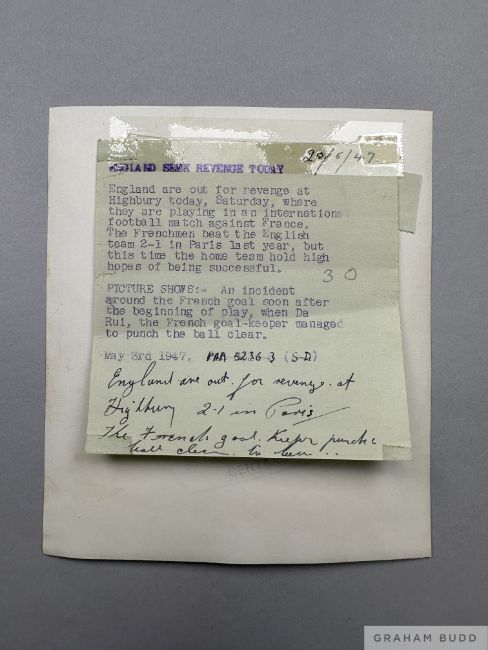 20/6/47.
ENGLAND SEEK REVENGE TODAY
England are out for revenge at
Highbury today, Saturday, where
they are playing in an international
football match against France.
The Frenchmen beat the English
team 2-1 in Paris last year, but
this time the home team hold high
hopes of being successful.
3 0
PICTURE SHOWS:- An incident
around the French goal soon after
the beginning of play, when Da
Rui, the French goal-keeper managed
to punch the ball clear.
May 3rd 1947. PAA 5236 3 (S-D)
England are out for revenge at
Highbury 2-1 in Paris
The French goal Keeper punch
ball clear to
CENT
GRAHAM BUDD